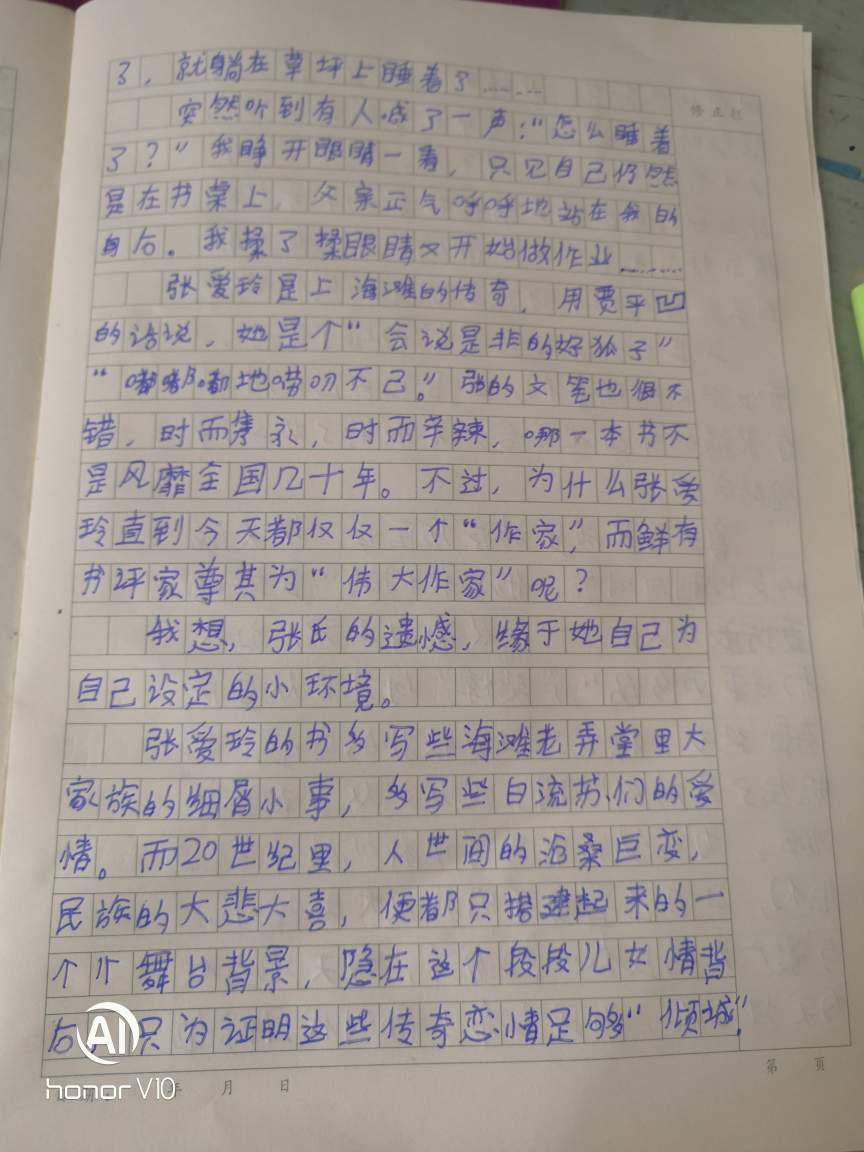 了，就躺在草坪上睡着了……
突然听到有人喊了一声："怎么睡着
了？"我睁开眼睛一看，只见自己仍然
是在书桌上，父亲正气呼呼地站在我的
身后。我揉了揉眼睛又开始做作业……
张爱玲是上海滩的传奇，用贾平凹
的话说，她是个"会说是非的好狐子"
"嘟嘟嘟地唠叨不已。"张的文笔也很不
错，时而隽永，时而辛辣，哪一本书不
是风靡全国几十年。不过，为什么张爱
玲直到今天都仅仅一个"作家"，而鲜有
书评家尊其为"伟大作家"呢？
我想，张氏的遗憾，缘于她自己为
自己设定的小环境。
张爱玲的书多写些海滩老弄堂里大
家族的细屑小事，多写些白流苏们的爱
情。而20世纪里，人世间的沧桑巨变，
民族的大悲大喜，便都只搭建起来的一
个个舞台背景，隐在这个段段儿女情背
后，只为证明这些传奇恋情足够"倾城"
修正栏
年 月 日
第 页
AI
honor V10